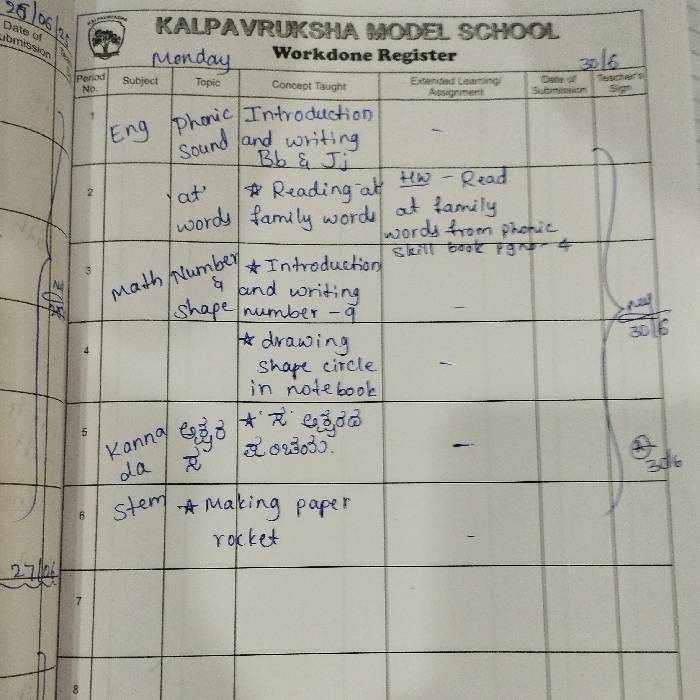 25/06/25
Date of
ubmission
KALPAVRUKSHA MODEL SCHOOL
Workdone Register
Monday
30/6
Period No.
Subject
Topic
Concept Taught
Extended Learning/ Assignment
Date of Submission
Teacher's Sign.
1
Eng
Phonic
Sound
Introduction
and writing
Bb & Jj
-
2
'at'
words
★ Reading-at
family words
HW - Read
at family
words from phonic
skill book pgno- 4
3
Math
Number
&
shape
★ Introduction
and writing
number - 9
-
30/6
4
★ drawing
shape circle
in notebook
-
5
Kanna
da
ಅಕ್ಷರ
ಸ
★ 'ಸ' ಅಕ್ಷರದ
-
30/6
6
Stem
★ Making paper
rocket
-
27/06
7
8